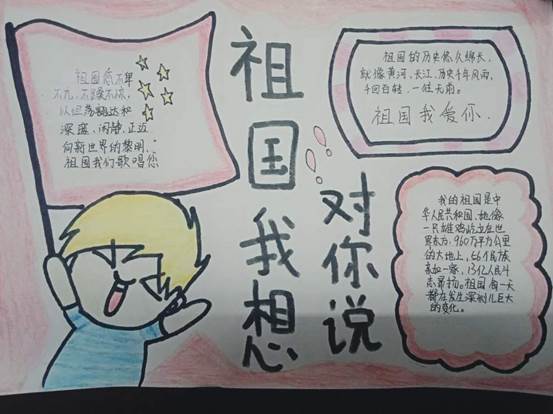 祖国我想
对你说
祖国愈不卑
不亢,不躁不惊,
以坦荡豁达和
深邃、闲静、正迈
向新世界的黎明,
祖国我们歌唱您
祖国的历史悠久绵长,
就像黄河、长江,历史千年风雨,
千回百转,一往无前。
祖国我爱你.
我的祖国是中
华人民共和国,她像
一只雄鸡屹立在世
界东方,960万平方公里
的大地上,56个民族
亲如一家,13亿人民斗
志昂扬。祖国每一天
都在发生深刻而巨大
的变化。